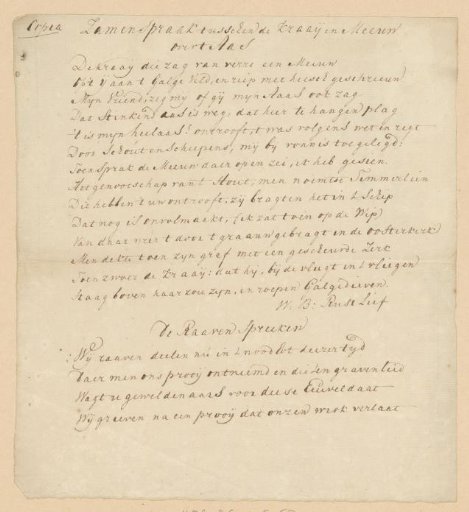 Copia Zamenspraak tusschen de kraaij en Meeuw
over t Aas
De kraay die zag van verre een Meeuw
Galge Veld, en riep met heesch geschreeuw
Mijn Vriend, zeg my of gy mijn Aas ook zag
Dat stinkend aas is weg, dat hier te hangen plag
t is mijn helaas! ontrooft, t was volgens wet in regt
Door Schout en Schepens, my by vonnis toegelegd:
Toen sprak de Meeuw daer op en zei, ik heb gesien
Het genootschap vant Hout, men noemtse Timmerlien
Die hebben t uw ontrooft, zy bragten het in t Schip
Dat nog is onvolmaakt, ik zat toen op de Wip
Van daar niert door t graauw gebragt in de oosterkerk
Men dekte toen zyn graf met een gescheurde Zerk
Toen zwoer de kraay: dat hy, by de vlugt in t vliegen
Staag boven haar zou zijn, en roepen Galgedieven.
W. B: Rust Lief
De Raaven Spreeken
Wy raaven deelen nu in t noodlot deezer tyd
Daer men ons prooy ontneemd en die ten graven leid
Wagt u geweldenaars voor deese Euveldaat
Wy graeven na een prooy dat onzen werk verlaat